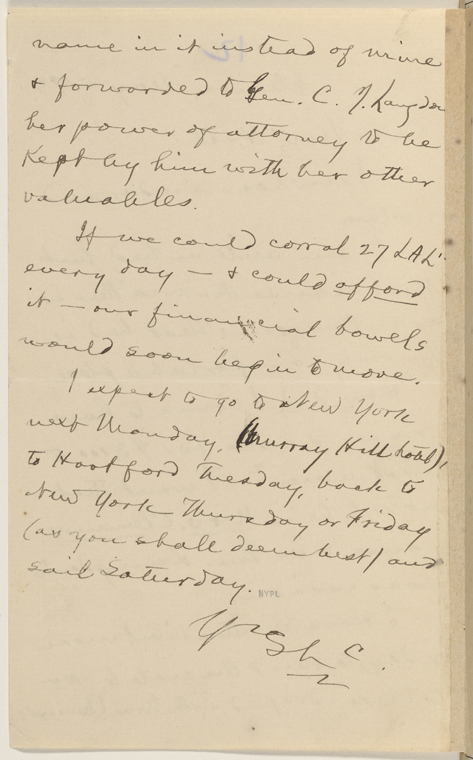 name in it instead of mine
& forwarded to Gen. C. J. Langdon
her power of attorney to be
Kept by him with her other
valuables.
If we could corral 27 LAL's
every day — & could afford
it — our financial bowels
would soon begin to move.
I expect to go to New York
next Monday, (Murray Hill hotel),
to Hartford Tuesday, back to
New York Thursday or Friday
(as you shall deem best) and
sail Saturday.
NYPL
Yrs
SLC.